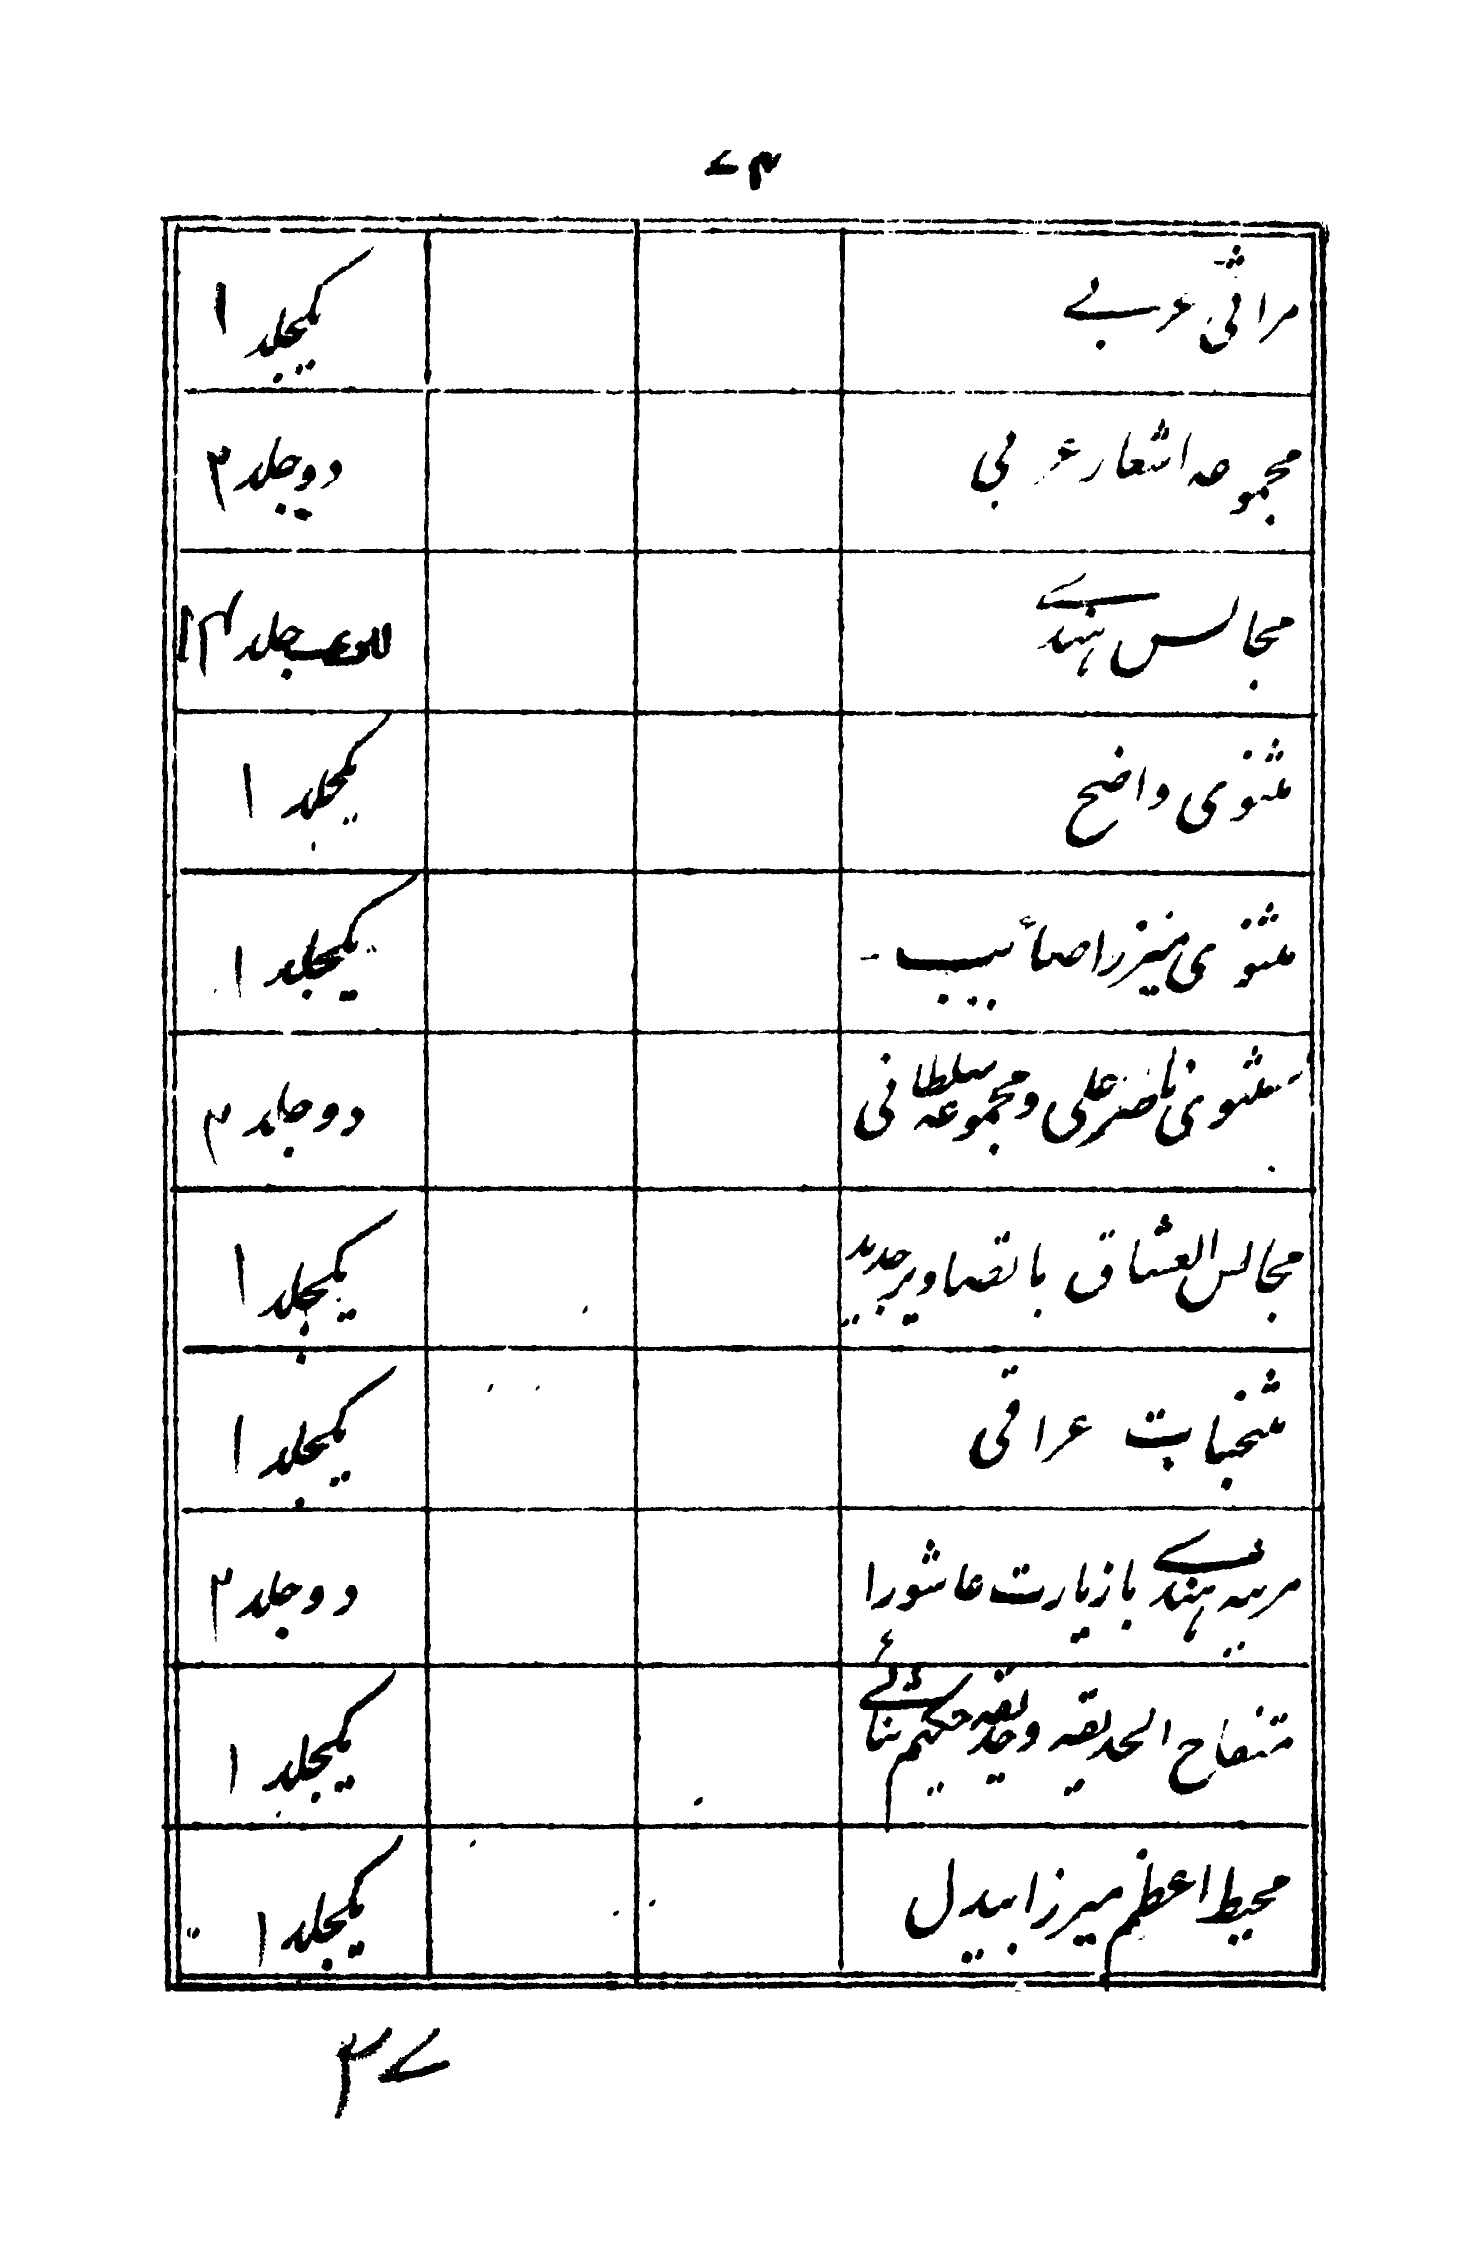 مراثی عربی یکجلد ۱
مجموعه اشعار عربی دوجلد ۲
مجالس هندی جلد
مثنوی واضح یکجلد ۱
مثنوی میرزا صائب - یکجلد ۱
مثنوی ناصر علی و مجموعه سلطانی دوجلد ۲
مجالس العشاق با تصاویر جدید یکجلد ۱
منتخبات عراقی یکجلد ۱
مرثیه هندی با زیارت عاشورا دوجلد ۲
مفتاح الحدیقه و حدیقه حکیم سنائی یکجلد ۱
محیط اعظم میرزا بیدل یکجلد ۱